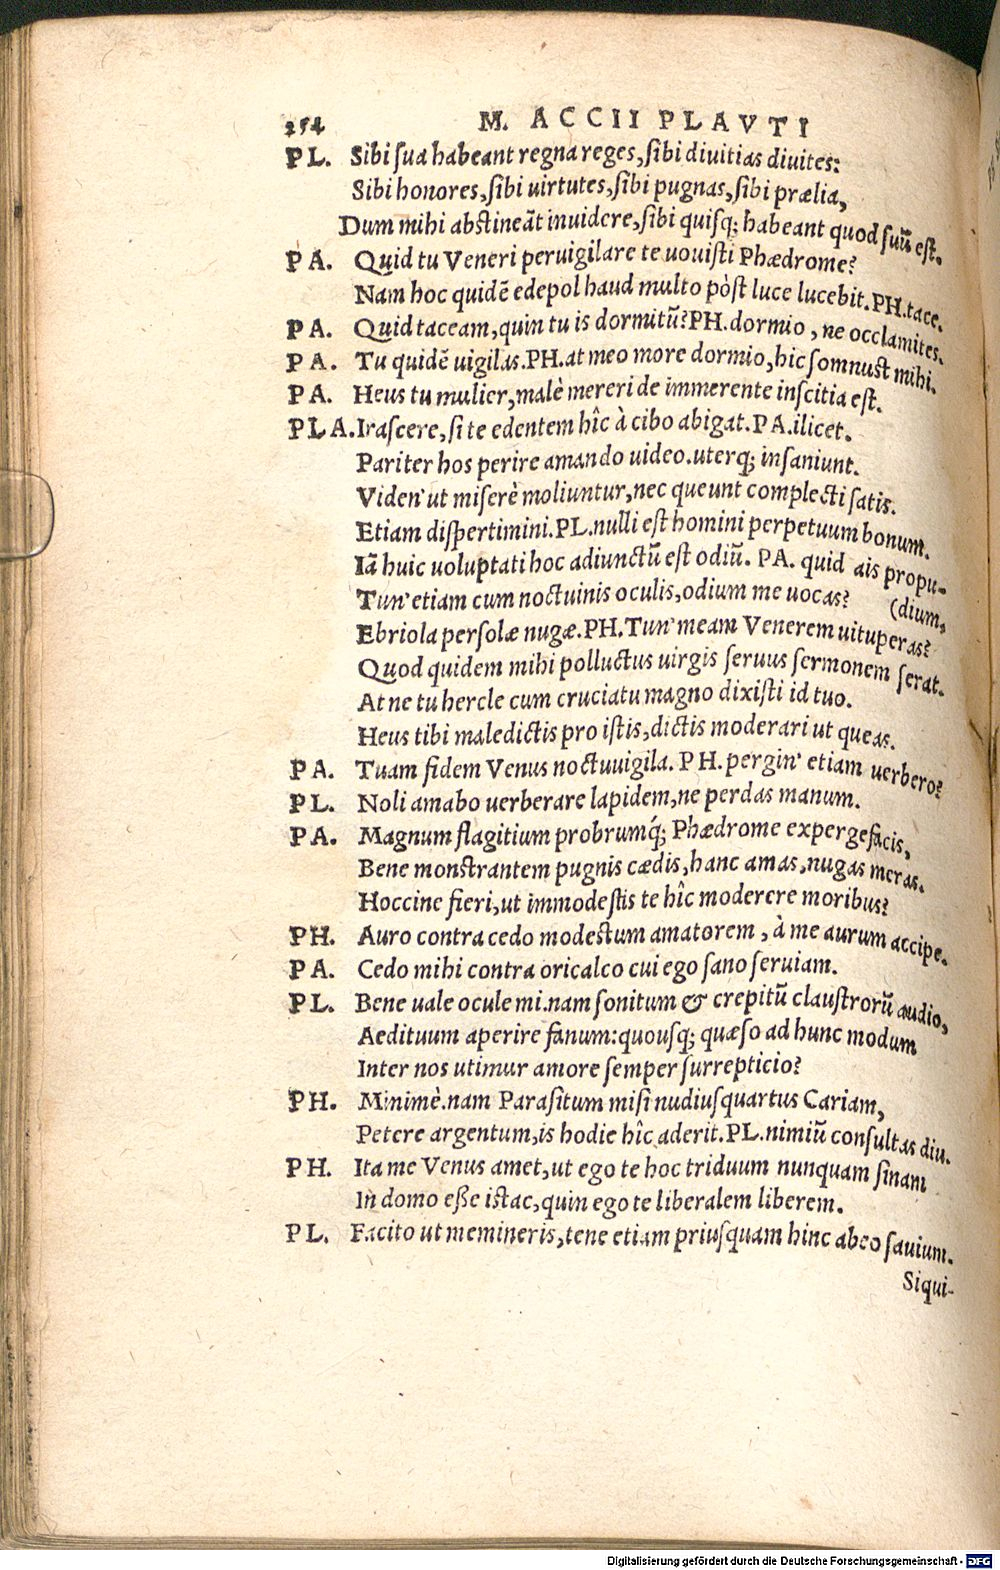 254 M. ACCII PLAVTI
PL. Sibi sua habeant regna reges, sibi diuitias diuites:
Sibi honores, sibi uirtutes, sibi pugnas, sibi prælia,
Dum mihi abstineãt inuidere, sibi quisq; habeant quod suũ est.
PA. Quid tu Veneri peruigilare te uouisti Phædrome?
Nam hoc quidẽ edepol haud multo pòst luce lucebit. PH. tace.
PA. Quid taceam, quin tu is dormitũ? PH. dormio, ne occlamites.
PA. Tu quidẽ uigilas. PH. at meo more dormio, hic somnust mihi.
PA. Heus tu mulier, malè mereri de immerente inscitia est.
PLA. Irascere, si te edentem hîc à cibo abigat. PA. ilicet.
Pariter hos perire amando uideo. uterq; insaniunt.
Viden' ut miserè moliuntur, nec queunt complecti satis.
Etiam dispertimini. PL. nulli est homini perpetuum bonum.
Iã huic uoluptati hoc adiunctũ est odiũ. PA. quid ais propu-
Tun' etiam cum noctuinis oculis, odium me uocas? (dium,
Ebriola persolæ nugæ. PH. Tun' meam Venerem uituperas?
Quod quidem mihi polluctus uirgis seruus sermonem serat.
At ne tu hercle cum cruciatu magno dixisti id tuo.
Heus tibi maledictis pro istis, dictis moderari ut queas.
PA. Tuam fidem Venus noctuuigila. PH. pergin' etiam uerbero?
PL. Noli amabo uerberare lapidem, ne perdas manum.
PA. Magnum flagitium probrumq́; Phædrome expergefacis,
Bene monstrantem pugnis cædis, hanc amas, nugas meras.
Hoccine fieri, ut immodestis te hîc moderere moribus?
PH. Auro contra cedo modestum amatorem, à me aurum accipe.
PA. Cedo mihi contra oricalco cui ego sano seruiam.
PL. Bene uale ocule mi. nam sonitum & crepitũ claustrorũ audio,
Aedituum aperire fanum: quousq; quæso ad hunc modum
Inter nos utimur amore semper surrepticio?
PH. Minimè. nam Parasitum misi nudiusquartus Cariam,
Petere argentum, is hodie hîc aderit. PL. nimiũ consultas diu.
PH. Ita me Venus amet, ut ego te hoc triduum nunquam sinam
In domo eße istac, quin ego te liberalem liberem.
PL. Facito ut memineris, tene etiam priusquam hinc abeo sauium.
Siqui-
Digitalisierung gefördert durch die Deutsche Forschungsgemeinschaft - DFG